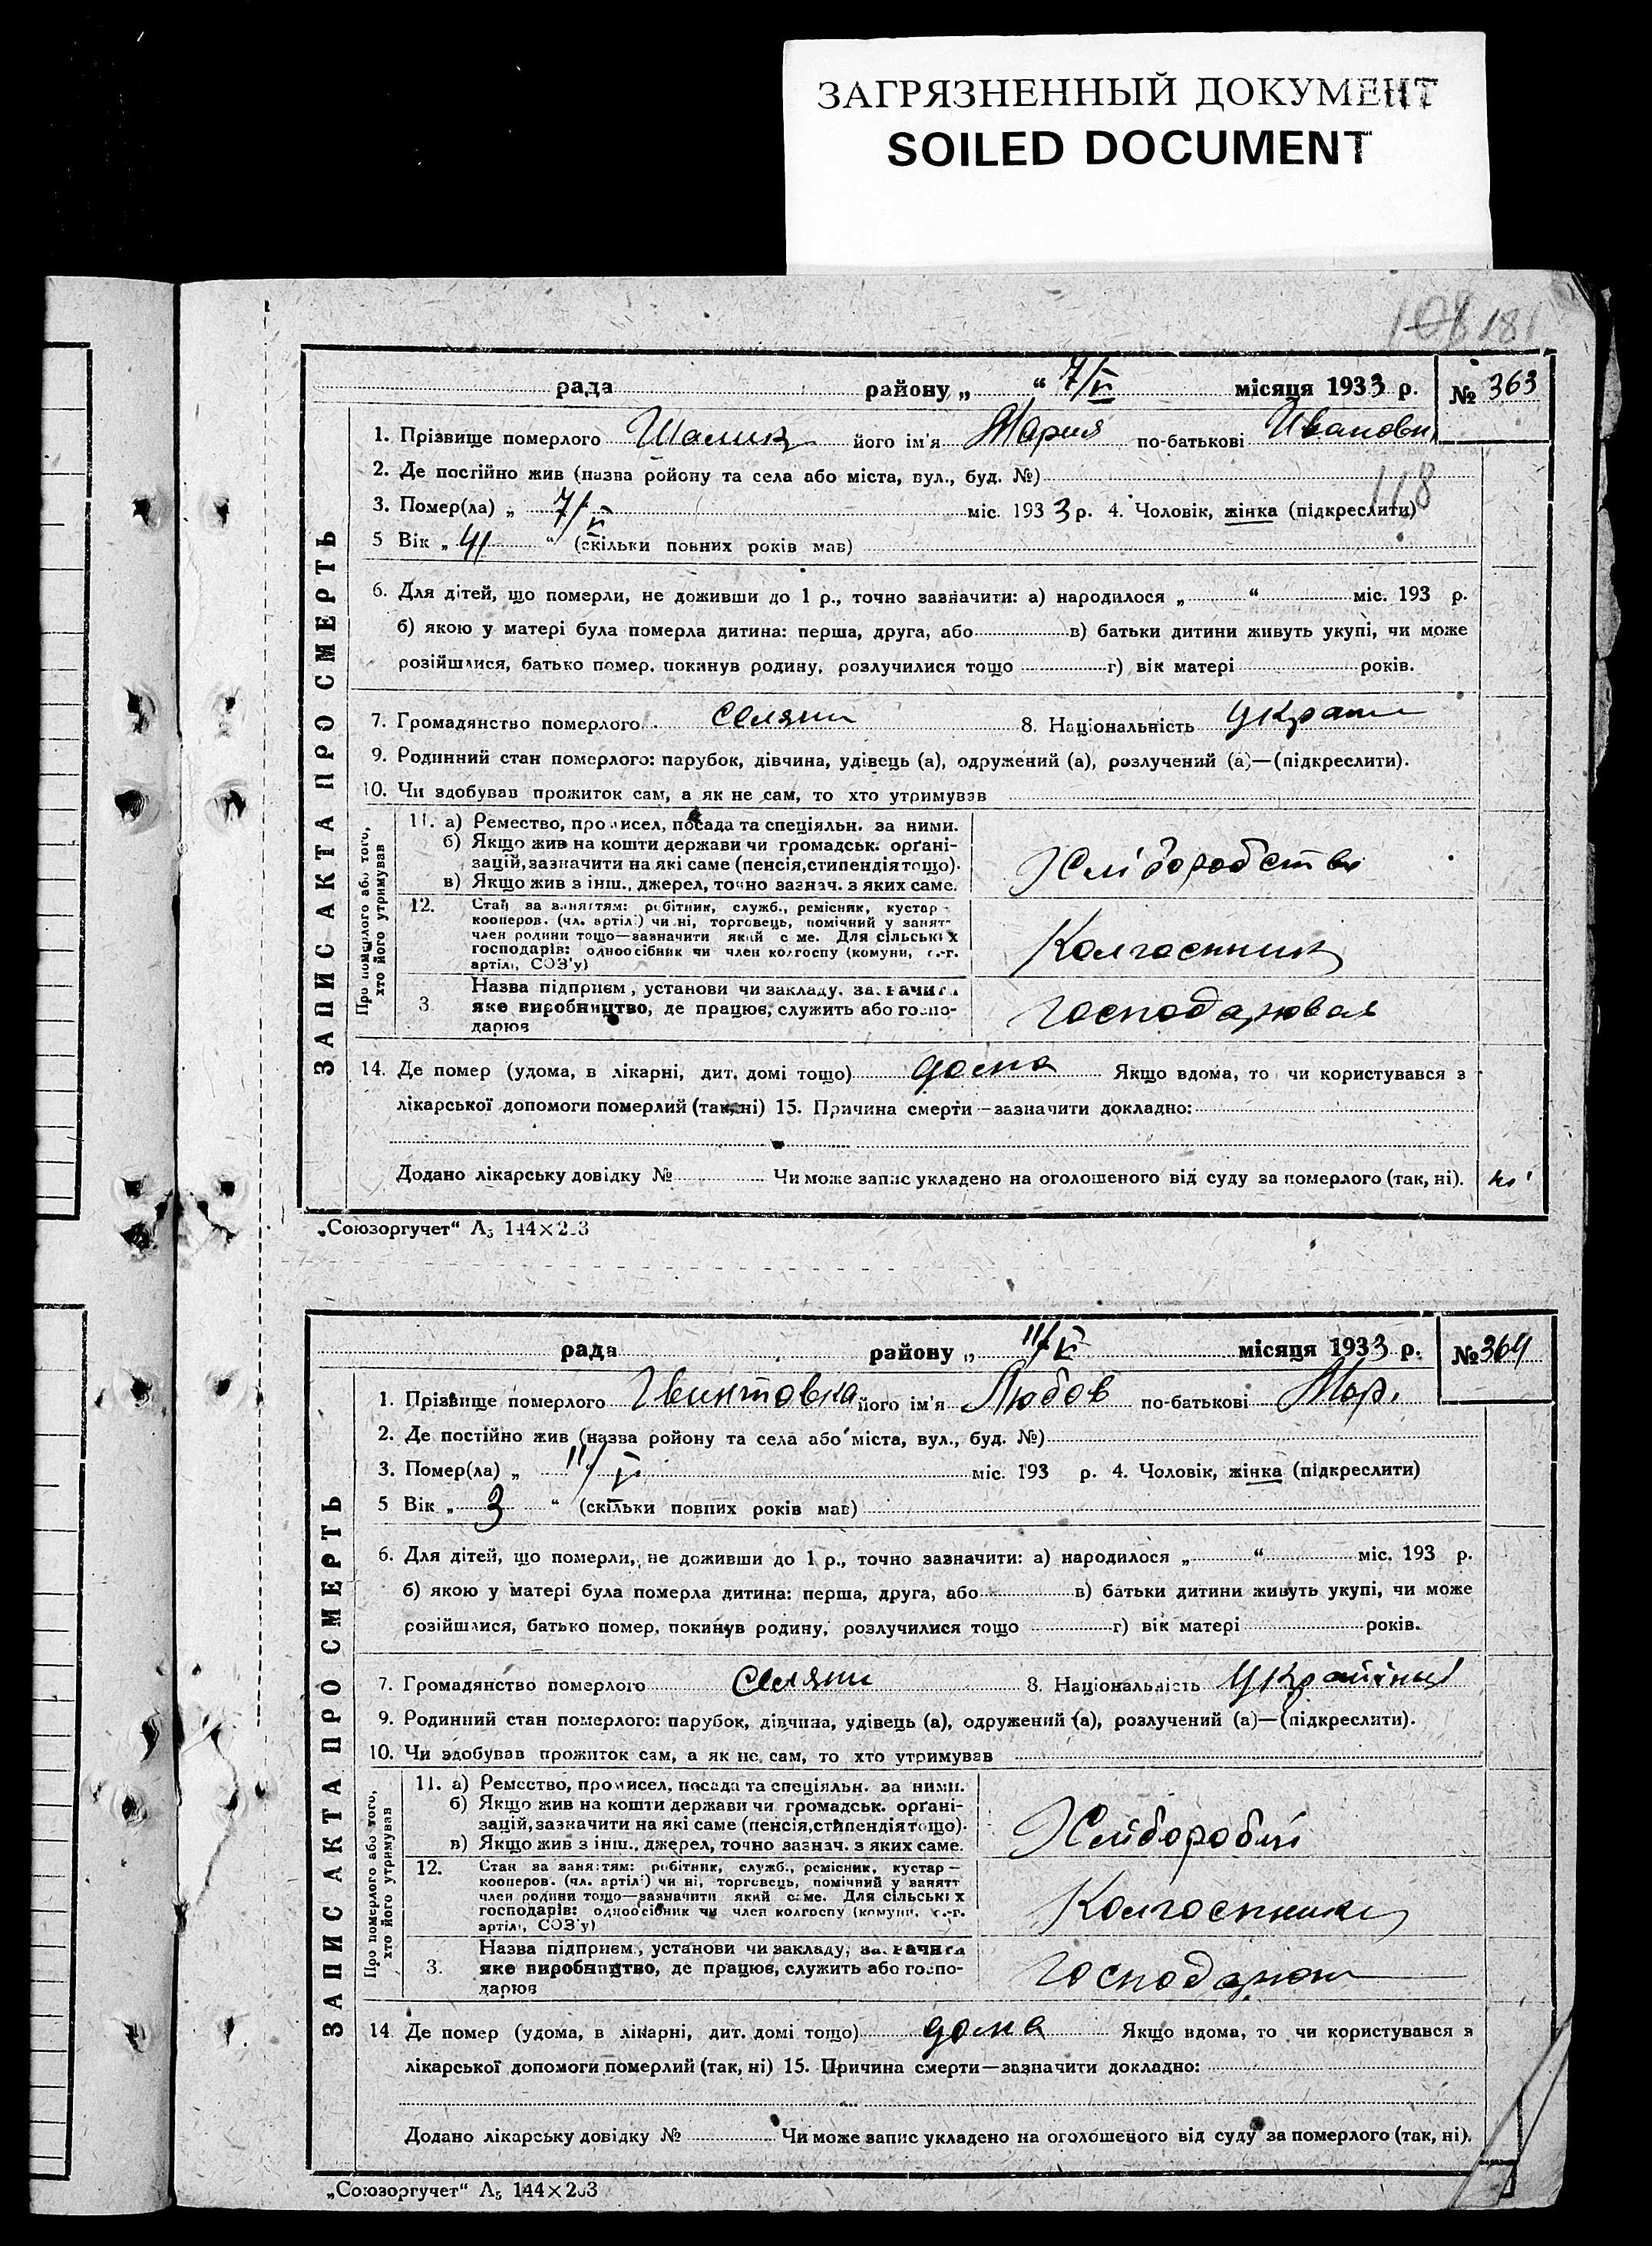 ЗАГРЯЗНЕННЫЙ ДОКУМЕНТ
SOILED DOCUMENT
181
рада района „ “ 7/V місяця 1933 р. № 363
1. Прізвище померлого його ім'я Мария по-батькові Ивановн
2. Де постійно жив (назва ройону та села або міста, вул., буд. №)
118
3. Помер(ла) „ 7/V міс. 1933 р. 4. Чоловік, жінка (підкреслити)
5 Вік „ 41 “ (скільки повних років мав)
6. Для дітей, що померли, не доживши до 1 р., точно зазначити: а) народилося „ “ міс. 193 р.
б) якою у матері була померла дитина: перша, друга, або в) батьки дитини живуть укупі, чи може
розійшлися, батько помер, покинув родину, розлучилися тощо г) вік матері років.
7. Громадянство померлого селяни 8. Національність Украин
9. Родинний стан померлого: парубок, дівчина, удівець (а), одружений (а), розлучений (а)—(підкреслити).
10. Чи здобував прожиток сам, а як не сам, то хто утримував
ЗАПИС АКТА ПРО СМЕРТЬ
Про померлого або того, хто його утримував
11. а) Ремество, промисел, посада та спеціяльн. за ними.
б) Якщо жив на кошти держави чи громадськ. орґані-
зацій, зазначити на які саме (пенсія, стипендія тощо).
в) Якщо жив з інш., джерел, точно зазнач. з яких саме.
Хліборобство
12. Стан за заняттям: робітник, служб., ремісник, кустар—
кооперов. (чл. артілі) чи ні, торговець, помічний у занятт
член родини тощо—зазначити який саме. Для сільських
господарів: одноосібник чи член колгоспу (комуни, с.-г.
артілі, СОЗ'у)
Колгоспник
3 Назва підприєм, установи чи закладу, зазначити
яке виробництво, де працює, служить або госпо-
дарює
господарювал
14. Де помер (удома, в лікарні, дит. домі тощо) дома Якщо вдома, то чи користувався з
лікарської допомоги померлий (так, ні) 15. Причина смерти—зазначити докладно:
Додано лікарську довідку № Чи може запис укладено на оголошеного від суду за померлого (так, ні). ні
„Союзоргучет“ А₅ 144×203
рада району „ 11/V місяця 1933 р. № 364
1. Прізвище померлого Гвинтовка його ім'я Любов по-батькові Мар.
2. Де постійно жив (назва ройону та села або міста, вул., буд. №)
3. Помер(ла) „ 11/V міс. 193 р. 4. Чоловік, жінка (підкреслити)
5 Вік „ 3 “ (скільки повних років мав)
6. Для дітей, що померли, не доживши до 1 р., точно зазначити: а) народилося „ “ міс. 193 р.
б) якою у матері була померла дитина: перша, друга, або в) батьки дитини живуть укупі, чи може
розійшлися, батько помер, покинув родину, розлучилися тощо г) вік матері років.
7. Громадянство померлого селяни 8. Національність Українці
9. Родинний стан померлого: парубок, дівчина, удівець (а), одружений (а), розлучений (а)—(підкреслити).
10. Чи здобував прожиток сам, а як не сам, то хто утримував
ЗАПИС АКТА ПРО СМЕРТЬ
Про померлого або того, хто його утримував
11. а) Ремество, промисел, посада та спеціяльн. за ними.
б) Якщо жив на кошти держави чи громадськ. орґані-
зацій, зазначити на які саме (пенсія, стипендія тощо).
в) Якщо жив з інш., джерел, точно зазнач. з яких саме.
12. Стан за заняттям: робітник, служб., ремісник, кустар—
кооперов. (чл. артілі) чи ні, торговець, помічний у занятт
член родини тощо—зазначити який саме. Для сільських
господарів: одноосібник чи член колгоспу (комуни, с.-г.
артілі, СОЗ'у)
Колгоспники
3. Назва підприєм., установи чи закладу, зазначити
яке виробництво, де працює, служить або госпо-
дарює
14 Де помер (удома, в лікарні, дит. домі тощо) дома Якщо вдома, то чи користувався з
лікарської допомоги померлий (так, ні) 15. Причина смерти—зазначити докладно:
Додано лікарську довідку № Чи може запис укладено на оголошеного від суду за померлого (так, ні).
„Союзоргучет“ А₅ 144×203